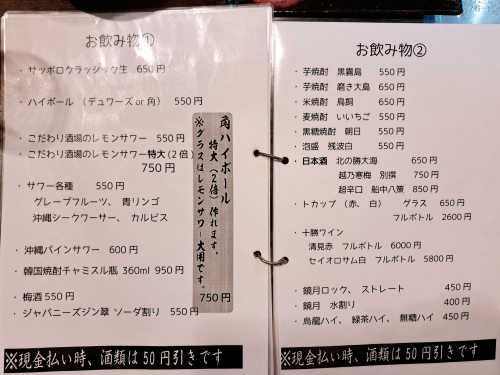 お飲み物①
・サッポロクラッシック生 650円
・ハイボール （デュワーズ or 角） 550円
・こだわり酒場のレモンサワー 550円
・こだわり酒場のレモンサワー特大(2倍)
750円
・サワー各種 550円
グレープフルーツ、 青リンゴ
沖縄シークワーサー、 カルピス
・沖縄パインサワー 600円
・韓国焼酎チャミスル瓶 360ml 950円
・梅酒 550円
・ジャパニーズジン翠 ソーダ割り 550円
角ハイボール
特大（2倍）作れます。
※グラスはレモンサワー大用です。
750円
※現金払い時、酒類は50円引きです
お飲み物②
・芋焼酎 黒霧島 550円
・芋焼酎 磨き大島 650円
・米焼酎 鳥飼 650円
・麦焼酎 いいちご 550円
・黒糖焼酎 朝日 550円
・泡盛 残波白 550円
・日本酒 北の勝大海 650円
越乃寒梅 別撰 750円
超辛口 船中八策 850円
・トカップ （赤、 白） グラス 650円
フルボトル 2600円
・十勝ワイン
清見赤 フルボトル 6000円
セイオロサム白 フルボトル 5800円
・鏡月ロック、 ストレート 450円
・鏡月 水割り 400円
・烏龍ハイ、 緑茶ハイ、 無糖ハイ 450円
※現金払い時、酒類は50円引きです